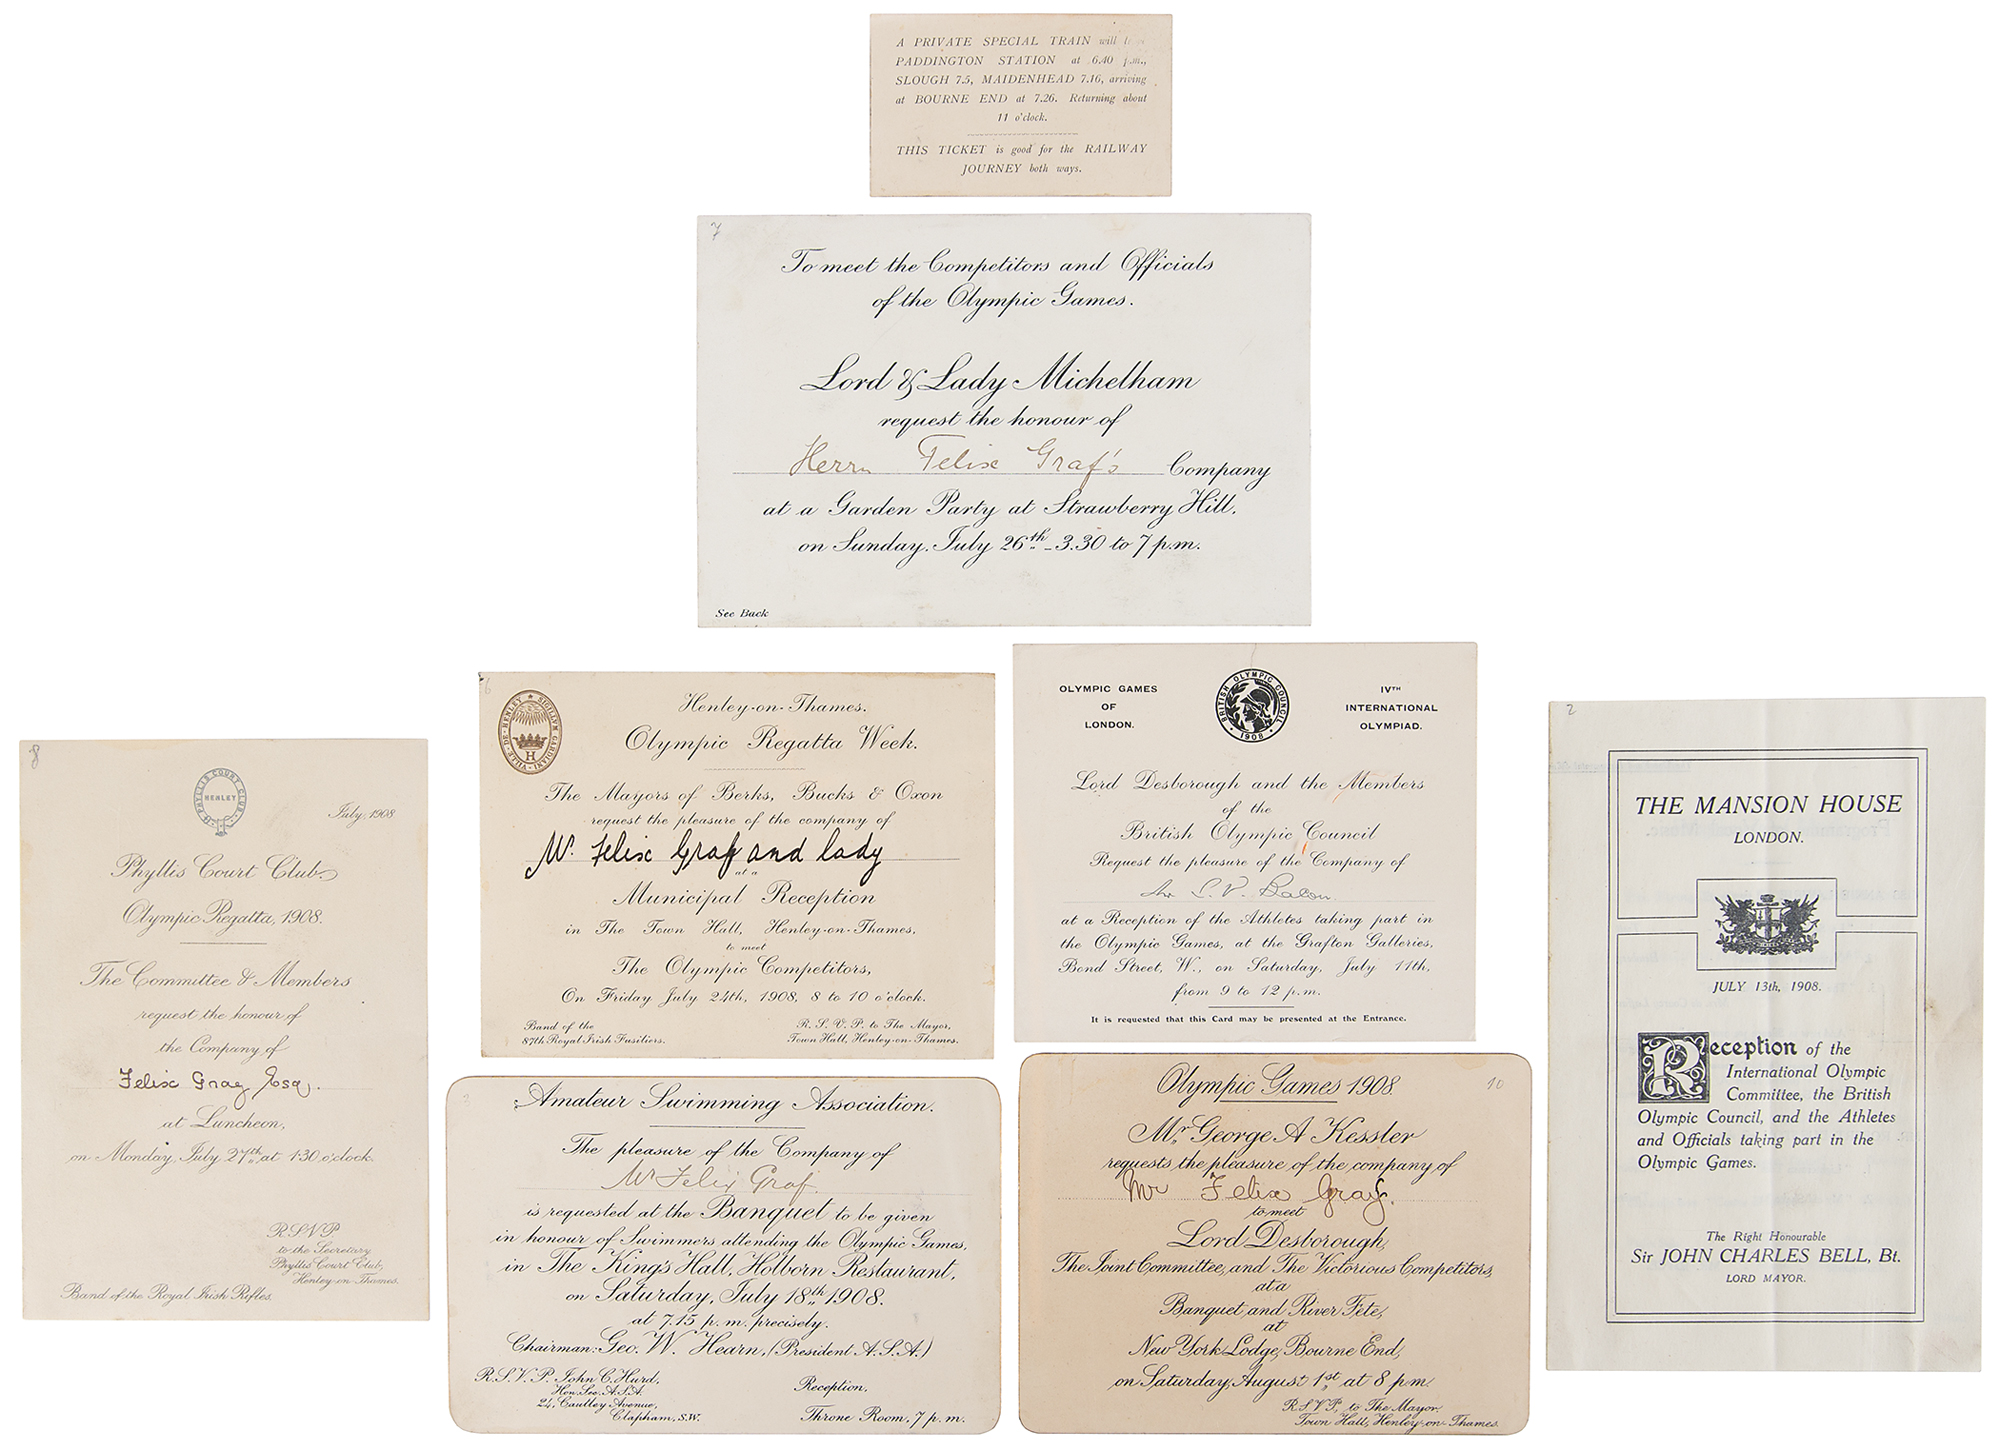 A PRIVATE SPECIAL TRAIN will
PADDINGTON STATION at 6.40 p.m.,
SLOUGH 7.5, MAIDENHEAD 7.16, arriving
at BOURNE END at 7.26. Returning about
11 o'clock.
THIS TICKET is good for the RAILWAY
JOURNEY both ways.
7
To meet the Competitors and Officials
of the Olympic Games.
Lord & Lady Michelham
request the honour of
Herrn Felix Graf's Company
at a Garden Party at Strawberry Hill,
on Sunday, July 26th - 3.30 to 7 p.m.
See Back
8
PHYLLIS COURT CLUB
HENLEY
July, 1908
Phyllis Court Club.
Olympic Regatta, 1908.
The Committee & Members
request the honour of
the Company of
Felix Graf Esq.
at Luncheon,
on Monday, July 27th at 1.30 o'clock.
R.S.V.P.
to the Secretary
Phyllis Court Club,
Henley-on-Thames.
Band of the Royal Irish Rifles.
6
Henley-on-Thames.
Olympic Regatta Week.
The Mayors of Berks, Bucks & Oxon
request the pleasure of the company of
Mr. Felix Graf and lady
at a
Municipal Reception
in The Town Hall, Henley-on-Thames,
to meet
The Olympic Competitors,
On Friday July 24th, 1908, 8 to 10 o'clock.
Band of the
87th Royal Irish Fusiliers.
R. S. V. P. to The Mayor,
Town Hall, Henley-on-Thames.
OLYMPIC GAMES
OF
LONDON.
BRITISH OLYMPIC COUNCIL
1908
IVTH
INTERNATIONAL
OLYMPIAD.
Lord Desborough and the Members
of the
British Olympic Council
Request the pleasure of the Company of
S. V. Bacon
at a Reception of the Athletes taking part in
the Olympic Games, at the Grafton Galleries,
Bond Street, W., on Saturday, July 11th,
from 9 to 12 p.m.
It is requested that this Card may be presented at the Entrance.
2
THE MANSION HOUSE
LONDON.
JULY 13th, 1908.
Reception of the
International Olympic
Committee, the British
Olympic Council, and the Athletes
and Officials taking part in the
Olympic Games.
The Right Honourable
Sir JOHN CHARLES BELL, Bt.
LORD MAYOR.
Amateur Swimming Association.
The pleasure of the Company of
Mr Felix Graf
is requested at the Banquet to be given
in honour of Swimmers attending the Olympic Games,
in The King's Hall, Holborn Restaurant,
on Saturday, July 18th 1908.
at 7.15 p.m. precisely.
Chairman: Geo. W. Hearn, (President A.S.A.)
R.S.V.P. John C. Hurd,
Hon. Sec. A.S.A.
24, Cautley Avenue,
Clapham, S.W.
Reception,
Throne Room, 7 p.m.
10
Olympic Games 1908.
Mr. George A Kessler
requests the pleasure of the company of
Mr Felix Graf.
to meet
Lord Desborough,
The Joint Committee, and The Victorious Competitors,
at a
Banquet and River Fete,
at
New York Lodge, Bourne End,
on Saturday, August 1st at 8 p.m.
R.S.V.P. to The Mayor,
Town Hall, Henley-on-Thames.